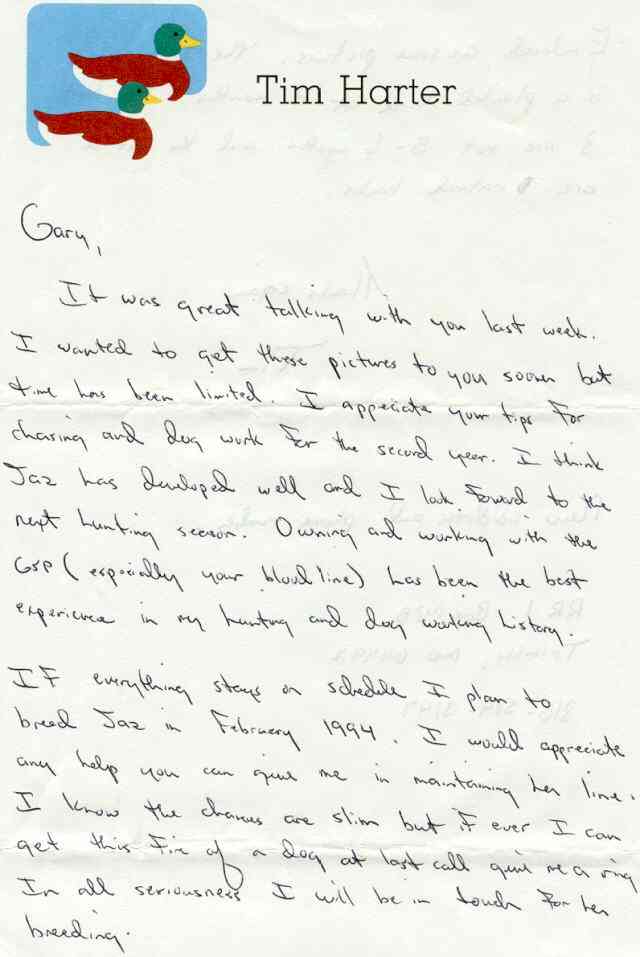 Tim Harter
Gary,
It was great talking with you last week.
I wanted to get these pictures to you sooner but
time has been limited. I appeciate your tips for
chasing and dog work for the second year. I think
Jaz has developed well and I look forward to the
next hunting season. Owning and working with the
GSP (especially your blood line) has been the best
experience in my hunting and dog working history.
If everything stays on schedule I plan to
breed Jaz in February 1994. I would appreciate
any help you can give me in maintaining her line.
I know the chances are slim but if ever I can
get this fine of a dog at last call give me a ring
In all seriousness I will be in touch for her
breeding.